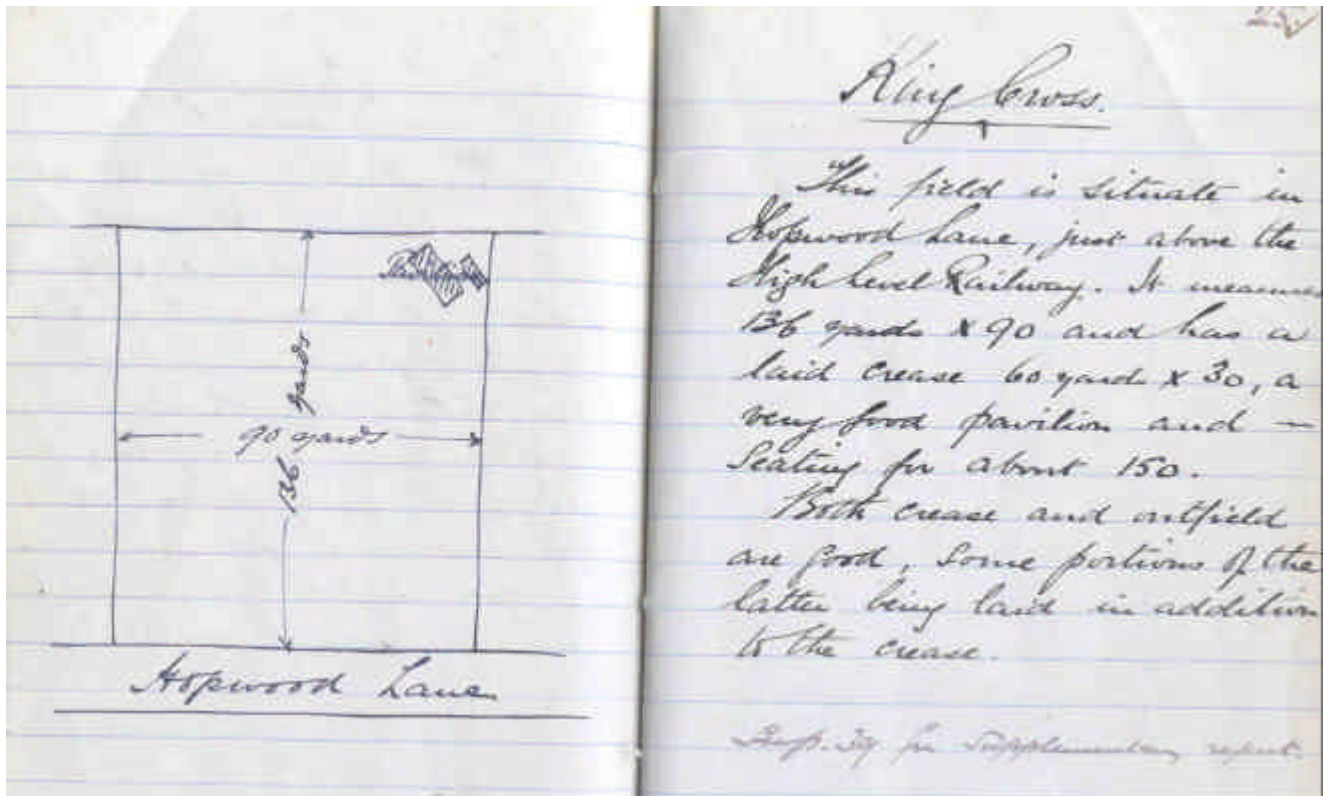 90 yards
136 yards
Hopwood Lane
25
King Cross.
This field is situate in
Hopwood Lane, just above the
High Level Railway. It measures
136 yards x 90 and has a
laid crease 60 yards x 30, a
very good pavilion and —
Seating for about 150.
Both crease and outfield
are good, some portions of the
latter being laid in addition
to the crease.
for Supplementary report.